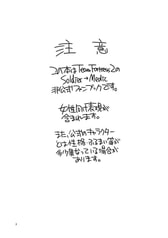 注意
この本はTeam Fortress2の
Soldier→Medic
非公式ファンブックです。
女性向け表現が
含まれます。
また、公式のキャラクター
とは性格・ふるまい等が
多少異なっている場合が
あります。